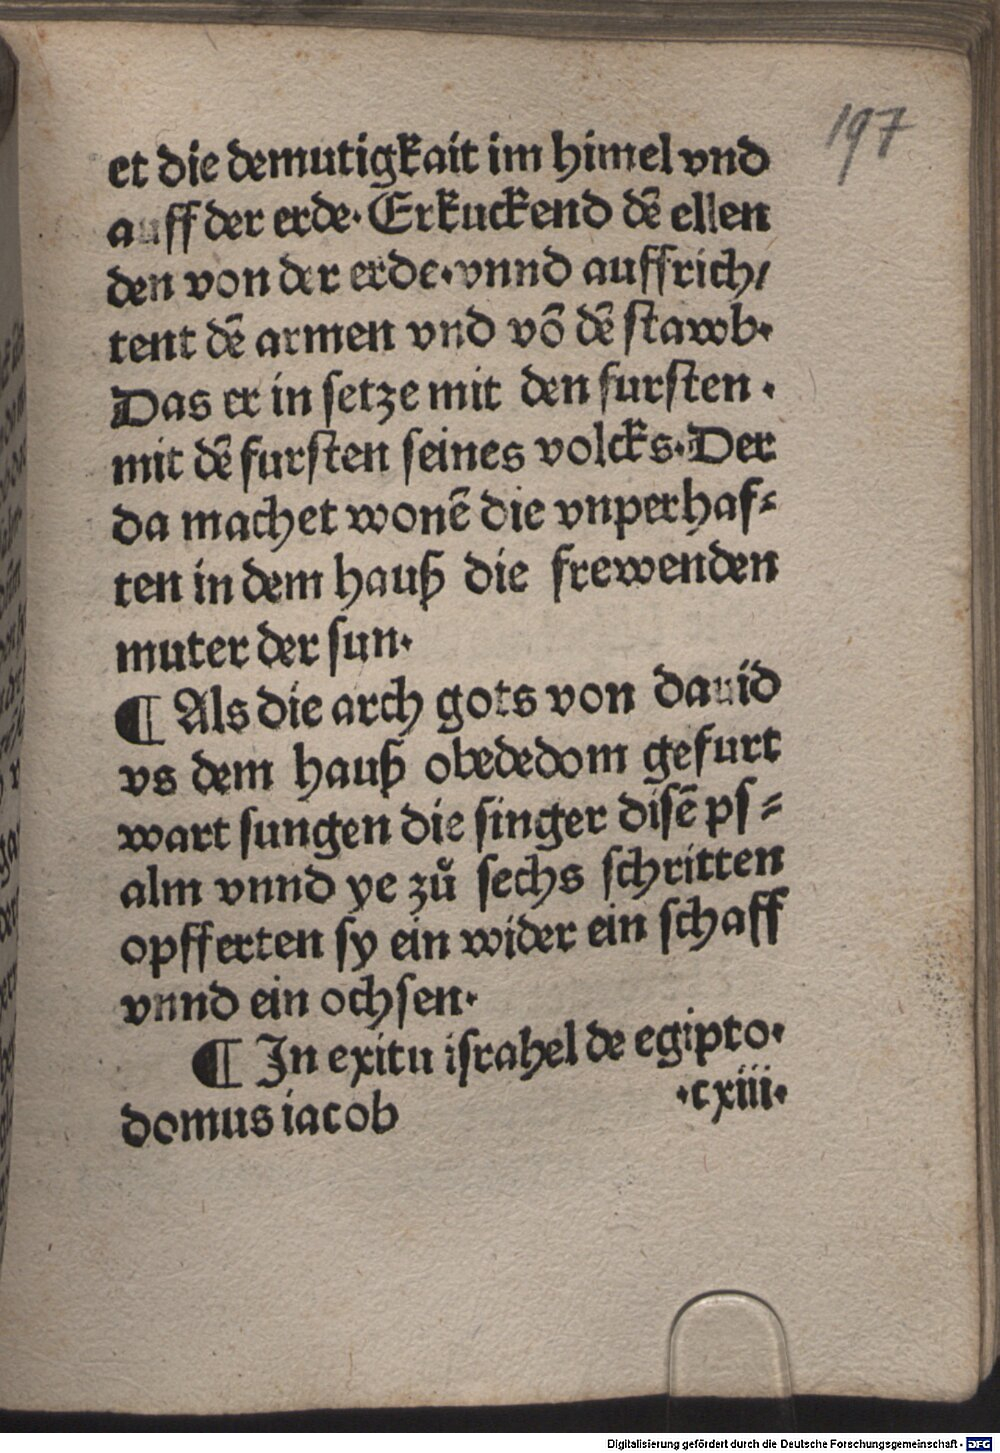 197
et die demutigkait im himel vnd
auff der erde· Erkuckend dē ellen
den von der erde·vnnd auffrich/
tent dē armen vnd vō dē stawb·
Das er in setze mit den fursten·
mit dē fursten seines volcks·Der
da machet wonē die vnperhaf⸗
ten in dem hauß die frewenden
muter der sun·
¶ Als die arch gots von dauid
vs dem hauß obededom gefurt
wart sungen die singer disē ps⸗
alm vnnd ye zů sechs schritten
opfferten sy ein wider ein schaff
vnnd ein ochsen·
¶ In exitu israhel de egipto·
domus iacob ·cxiii·
Digitalisierung gefördert durch die Deutsche Forschungsgemeinschaft - DFG